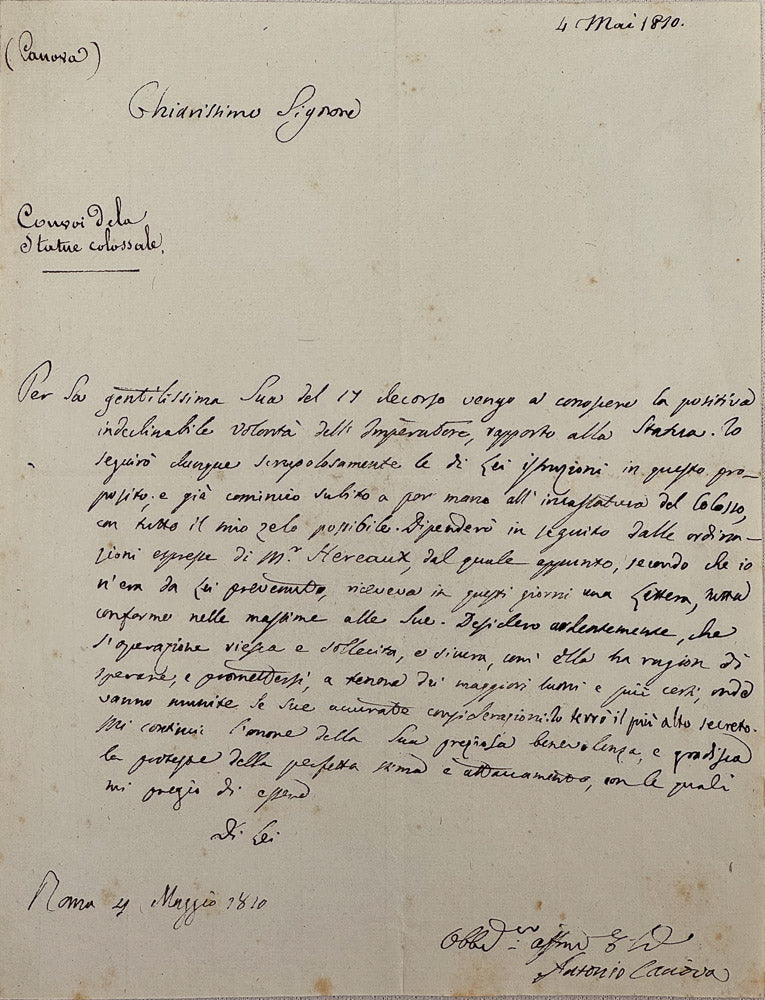 4 Mai 1810.
(Canova)
Chiarissimo Signore
Convoi de la
Statue colossale.
Per la gentilissima Sua del 17 decorso vengo a conoscere la positiva
indeclinabile volontà dell' Imperatore, rapporto alla Statua. Io
seguirò dunque scrupolosamente le di Lei istruzioni in questo pro-
posito; e già comincio subito a por mano all' incassatura del Colosso,
con tutto il mio zelo possibile. Dipenderò in seguito dalle ordina-
zioni espresse di M.r Hereaux, dal quale appunto, secondo che io
n'era da Lei prevenuto, riceveva in questi giorni una Lettera, tutta
conforme nelle massime alle Sue. Desidero ardentemente, che
l'operazione riesca e sollecita, e sicura, com' Ella ha ragion di
sperare, e promettersi, a tenore dei maggiori lumi e più certi, onde
vanno munite le Sue accurate considerazioni. Io terrò il più alto secreto.
Mi continui l'onore della Sua preziosa benevolenza, e gradisca
le proteste della perfetta stima e attaccamento, con le quali
mi pregio di essere
Di Lei
Roma 4 Maggio 1810
Antonio Canova